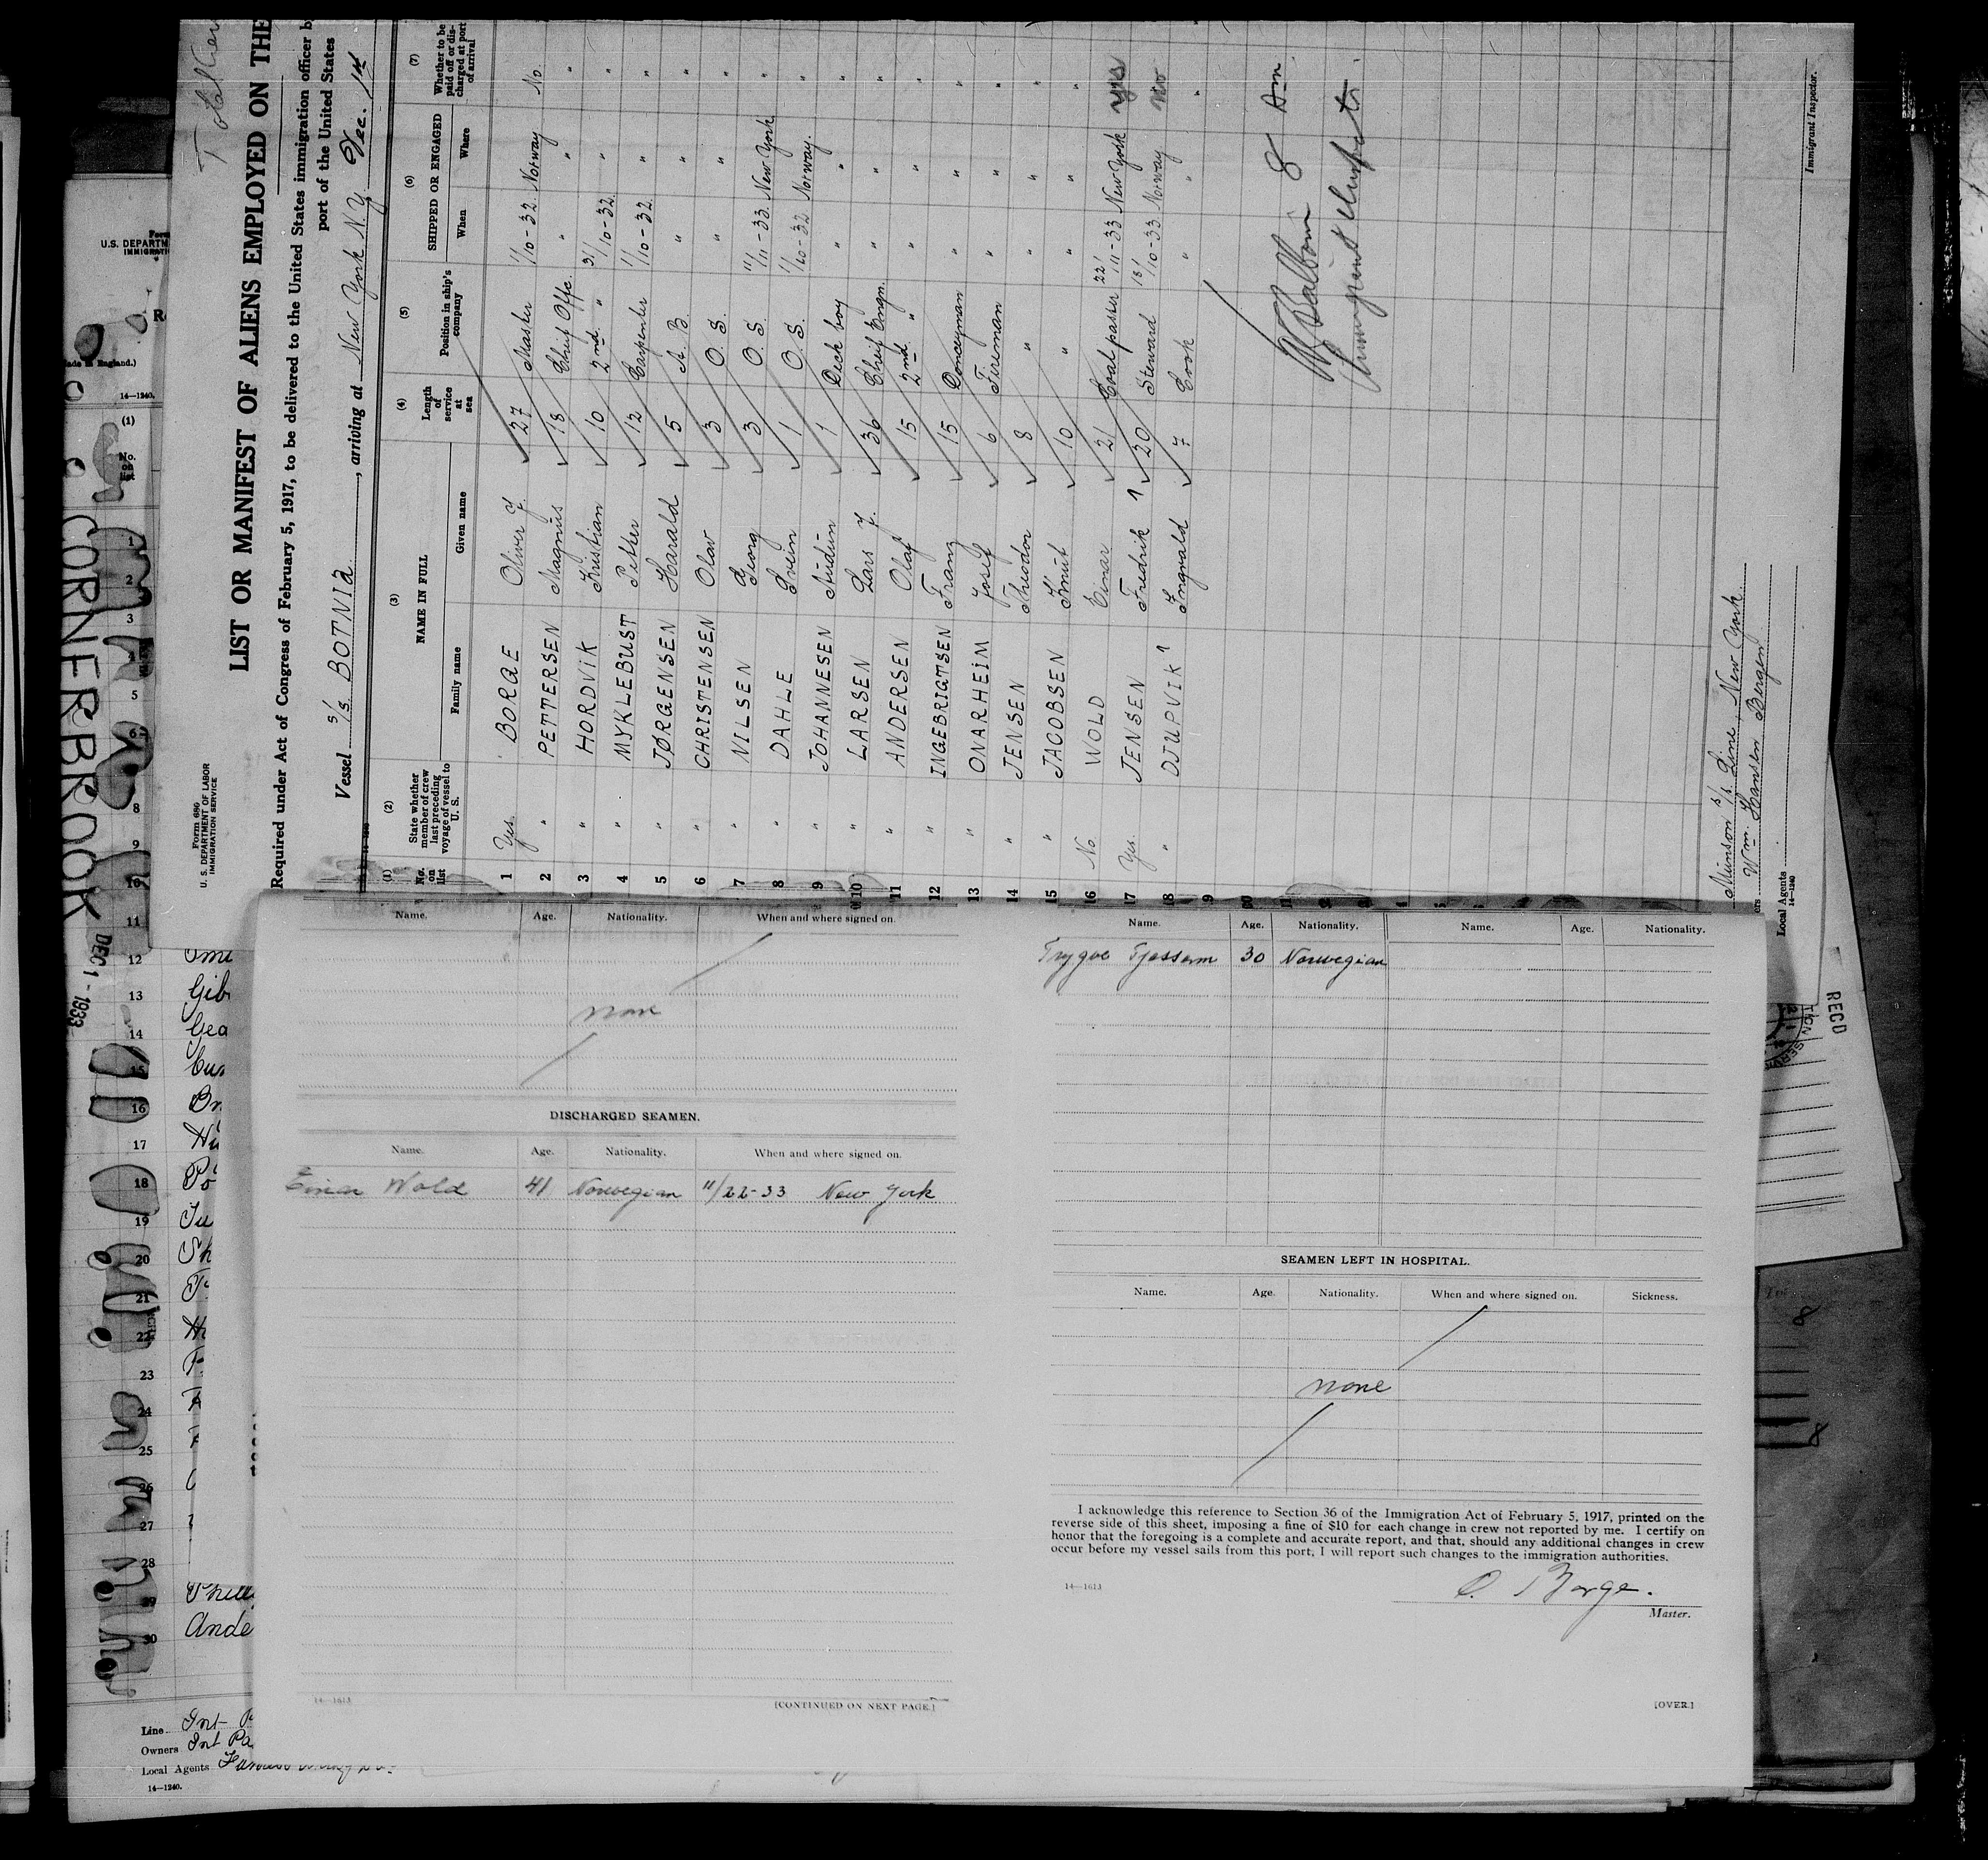 Total
LIST OR MANIFEST OF ALIENS EMPLOYED ON THE
Form 680
U. S. DEPARTMENT OF LABOR
IMMIGRATION SERVICE
Required under Act of Congress of February 5, 1917, to be delivered to the United States immigration officer b
port of the United States
Vessel S/S. BOTNIA, arriving at New York N.Y. Dec. 1st
(1) (2) (3) (4) (5) (6) (7)
No. on list State whether member of crew last preceding voyage of vessel to U. S. NAME IN FULL Length of service at sea Position in ship's company SHIPPED OR ENGAGED Whether to be paid off or discharged at port of arrival
Family name Given name When Where
1 Yes. BORGE Oliver J. 27 Master 1/10-32. Norway No.
2 " PETTERSEN Magnus 18 Cheif Offc. " " "
3 " HORDVIK Kristian 10 2nd " 31/10-32. " "
4 " MYKLEBUST Petter 12 Carpenter 1/10-32. " "
5 " JØRGENSEN Harald 5 A. B. " " "
6 " CHRISTENSEN Olav 3 O. S. " " "
7 " NILSEN Georg 3 O. S. 11/11-33. New York "
8 " DAHLE Svein 1 O. S. 1/10-32 Norway. "
9 " JOHANNESEN Audun 1 Deck boy " " "
10 " LARSEN Lars J. 36 Cheif Engn. " " "
11 " ANDERSEN Olaf 15 2nd " " " "
12 " INGEBRIGTSEN Franz 15 Donceyman " " "
13 " ONARHEIM Josef 6 Fireman " " "
14 " JENSEN Theodor 8 " " " "
15 " JACOBSEN Knut 10 " " " "
16 No WOLD Einar 21 Coalpasser 22/11-33 New York yes
17 Yes JENSEN Fredrik 20 Steward 13/10-33 Norway no
18 " DJUPVIK Ingvald 7 Cook " " "
19
8 Am
Immigrant Inspector
Immigrant Inspector.
Munson S/S Line, New York
Wm. Hansen Bergen
Local Agents
14—1240
CORNERBROOK
DEC 1 - 1933
U.S. DEPARTM
IMMIGRATI
14—1240.
(1)
No.
1
2
3
4
5
6
7
8
9
10
11
12
13 Gib
14 Gea
15
16
17
18 Po
19
20 Sh
21
22
23
24
25
26
27
28
29
30 Ande
Line Int
Owners Int Pa
Local Agents
14—1240.
RECD
Name. Age. Nationality. When and where signed on.
none
DISCHARGED SEAMEN.
Name. Age. Nationality. When and where signed on.
Einar Wold 41 Norwegian 11/22-33 New York
14—1613
[CONTINUED ON NEXT PAGE.]
Name. Age. Nationality. Name. Age. Nationality.
Trygve 30 Norwegian
SEAMEN LEFT IN HOSPITAL.
Name. Age. Nationality. When and where signed on. Sickness.
none
I acknowledge this reference to Section 36 of the Immigration Act of February 5, 1917, printed on the
reverse side of this sheet, imposing a fine of $10 for each change in crew not reported by me. I certify on
honor that the foregoing is a complete and accurate report, and that, should any additional changes in crew
occur before my vessel sails from this port, I will report such changes to the immigration authorities.
14—1613
O. Borge.
Master.
[OVER.]